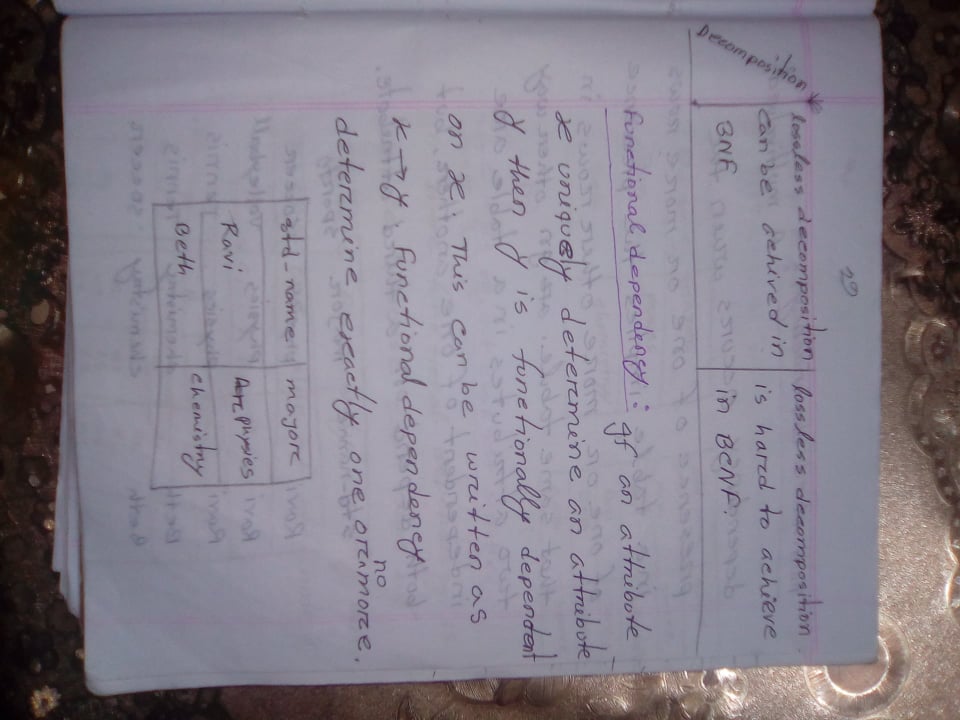 29
Decomposition
lossless decomposition
can be achived in
3NF
lossless decomposition
is hard to achieve
in BCNF.
functional dependency : If an attribute
x uniquely determine an attribute
y then y is functionally dependent
on x. This can be written as
x → y. Functional dependency
determine exactly one or no more.
std-name major
Ravi physics
Beth chemistry